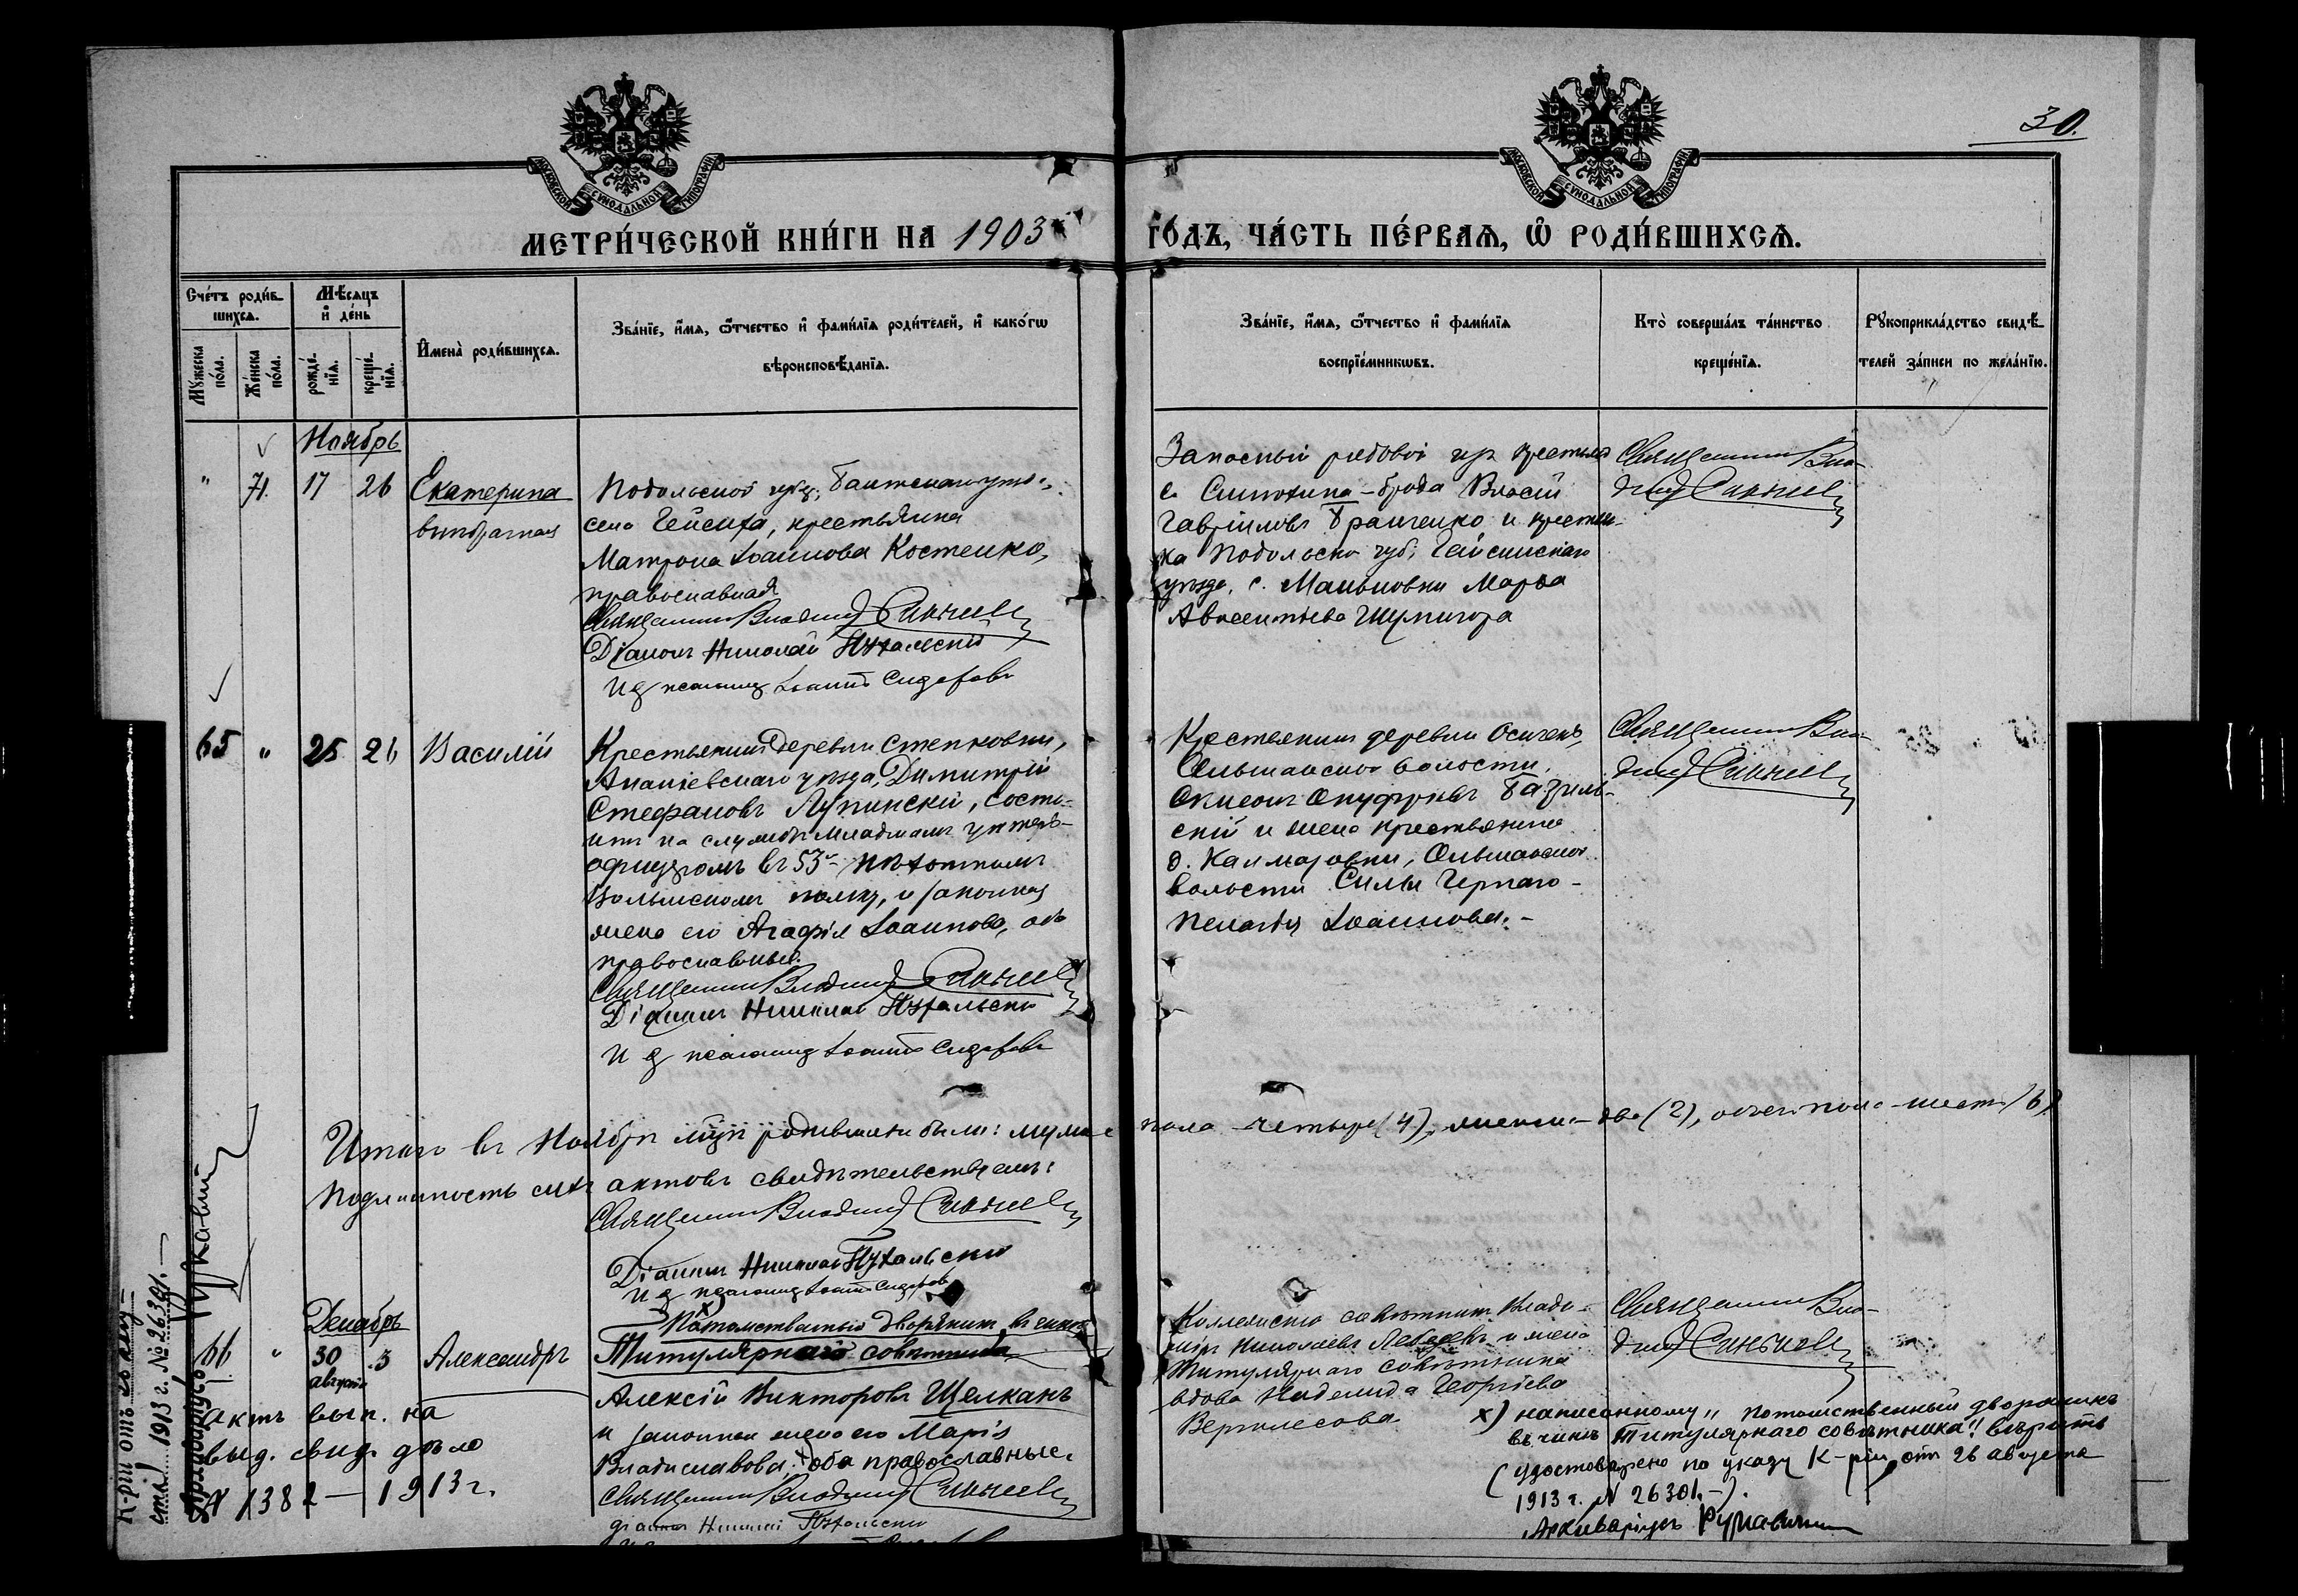 30.
МОСКОВСКОЙ СѴНОДАЛЬНОЙ ТИПОГРАФІИ
МОСКОВСКОЙ СѴНОДАЛЬНОЙ ТИПОГРАФІИ
МЕТРИ́ЧЕСКОЙ КНИ́ГИ НА 1903
ГО́ДЪ, ЧА́СТЬ ПЕ́РВАѦ, Ѡ҆ РОДИ́ВШИХСѦ.
Сче́тъ роди́в-
шихсѧ.
Мѣ́сѧцъ
и҆ де́нь
Мꙋ́жеска по́ла.
Же́нска по́ла.
рожде́-
нїѧ.
креще́-
нїѧ.
И҆мена̀ роди́вшихсѧ.
Зва́нїе, и҆́мѧ, ѻ҆́тчество и҆ фами́лїѧ роди́телей, и҆ како́гѡ
вѣроисповѣ́данїѧ.
Зва́нїе, и҆́мѧ, ѻ҆́тчество и҆ фами́лїѧ
воспрїе́мникѡвъ.
Кто̀ соверша́лъ та́инство
креще́нїѧ.
Рꙋкоприкла́дство свидѣ́-
телей за́писи по жела́нїю.
Ноябрь
" 71. 17 26 Екатерина
внѣбрачная
Подольской губ.
села, крестьянка
Матрона Іоаннова Костенко,
православная
Священникъ Владимір Синьчев
Діаконъ Николай
И д псаломщ Іоаннъ Сидоров
Запасный рядовой из крестьян
с. Синюхина-Брода Власій
Гавріиловъ и крестьян-
ка Подольской губ. Гайсинскаго
уѣзда, с. Маньковки Марѳа
Авксентіева Шупигора
Священникъ Вла-
димір Синьчев
65 " 25 26 Василій
Крестьянинъ деревни Степковки,
Ананіевскаго уѣзда, Димитрій
Стефановъ Лупинскій, состо-
итъ на службѣ младшимъ унтеръ-
офицеромъ въ 53-м пѣхотномъ
Волынскомъ полку, и законная
жена его Агафія Іоаннова, оба
православные.
Священникъ Владимір Синьчев
Діаконъ Николай
И д псаломщ Іоаннъ Сидоров
Крестьянинъ деревни Осичекъ,
Ольшанской волости,
Онуфріевъ Базиль-
скій и жена крестьянина
д. Калмазовки, Ольшанской
волости Силы Чернаго -
Пелагія Іоаннова. -
Священникъ Вла-
димір Синьчев
Итого въ Ноябрѣ мцѣ родившихся было: мужска
пола - четыре (4), женска - два (2), обоего пола - шесть (6)
Подлинность сихъ актовъ свидѣтельствуемъ:
Священникъ Владимір Синьчев
Діаконъ Николай
И д псаломщ Іоаннъ Сидоров
Декабрь
66 " 30 августа 5 Александръ
х) Потомственный дворянинъ въ чинѣ
Титулярнаго совѣтника
Алексій Викторовъ Щелканъ
и законная жена его Марія
Владиславова: оба православные.
Священникъ Владимір Синьчев
діаконъ Николай
Коллежскій совѣтникъ Влади-
міръ Николаевъ Лебедевъ и жена
Титулярнаго совѣтника
вдова Надежда Георгіева
Священникъ Вла-
димір Синьчев
х) написанному „потомственный дворянинъ
въ чинѣ Титулярнаго совѣтника" вѣрить
(удостовѣрено по указу К-ріи отъ 26 августа
1913 г. № 26301.-).
Архиваріусъ
Актъ вып. на
выд. свид. дѣло
№ 1382 — 1913 г.
К-ріи отъ 26 авгу-
ста 1913 г. № 26301.—
Архиваріусъ